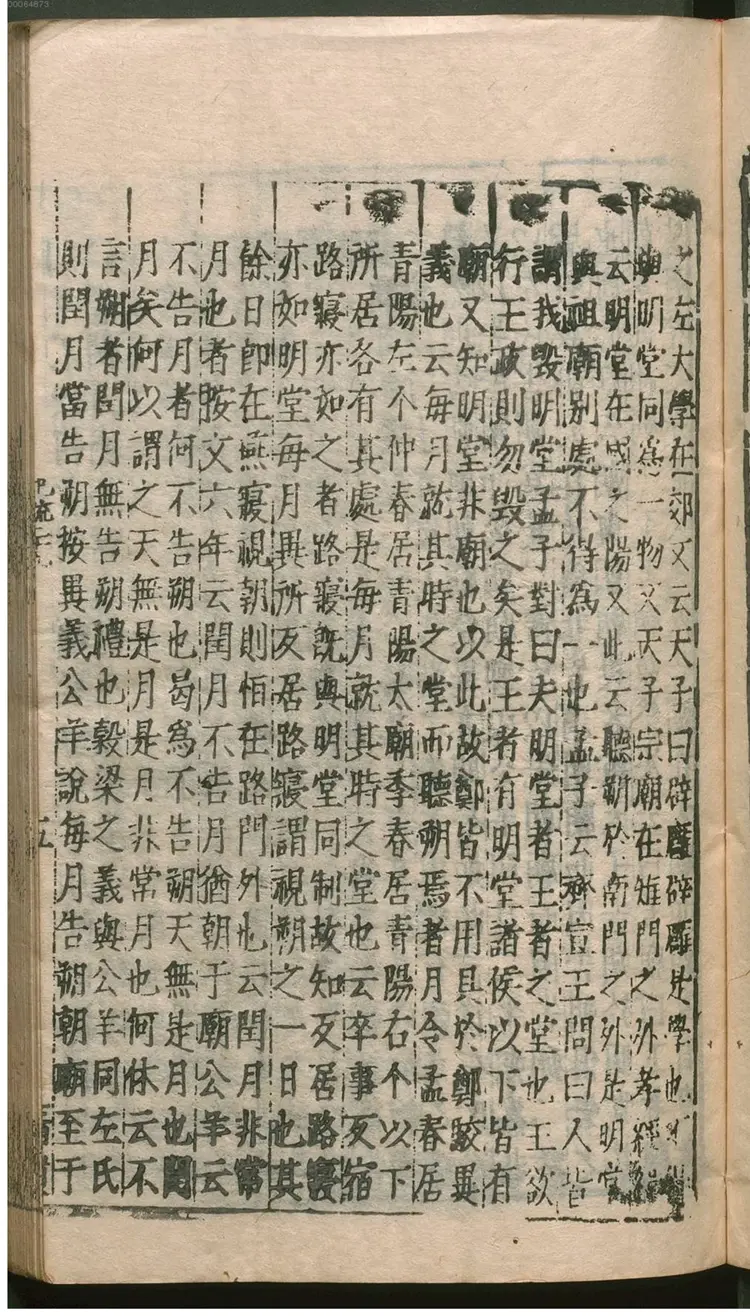 之左大學在郊又云天子曰辟廱辟廱是學也不得
與明堂同為一物又天子宗廟在雉門之外孝經
云明堂在國之陽又此云聽朔於南門之外是明堂
與祖廟別處不得為一也孟子云齊宣王問曰人皆
謂我毀明堂孟子對曰夫明堂者王者之堂也王欲
行王政則勿毀之矣是王者有明堂諸侯以下皆有
廟又知明堂非廟也以此故鄭皆不用具於鄭駮異
義也云每月就其時之堂而聽朔焉者月令孟春居
青陽左个仲春居青陽太廟季春居青陽右个以下
所居各有其處是每月就其時之堂也云卒事反宿
路寢亦如之者路寢既與明堂同制故知反居路寢
亦如明堂每月異所反居路寢謂視朔之一日也其
餘日即在燕寢視朝則恒在路門外也云閏月非常
月也者按文六年云閏月不告月猶朝于廟公羊云
不告月者何不告朔也曷為不告朔天無是月也閏
月矣何以謂之天無是月是月非常月也何休云不
言朔者閏月無告朔禮也穀梁之義與公羊同左氏
則閏月當告朔按異義公羊說每月告朔朝廟至于
五